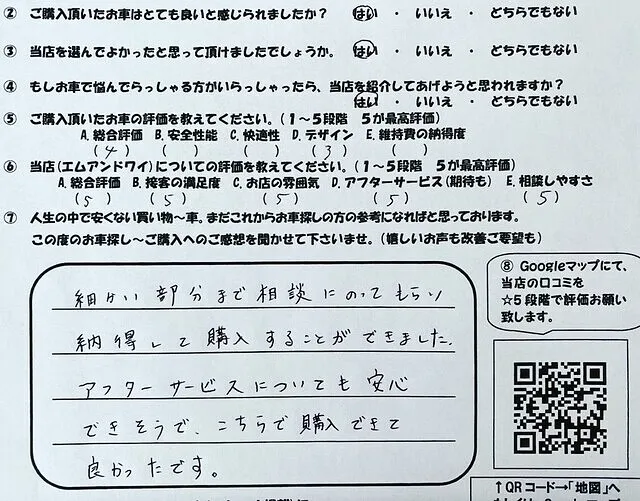 ② ご購入頂いたお車はとても良いと感じられましたか？ はい ・ いいえ ・ どちらでもない
③ 当店を選んでよかったと思って頂けましたでしょうか。 はい ・ いいえ ・ どちらでもない
④ もしお車で悩んでらっしゃる方がいらっしゃったら、当店を紹介してあげようと思われますか？
はい ・ いいえ ・ どちらでもない
⑤ ご購入頂いたお車の評価を教えてください。（１～５段階 ５が最高評価）
A. 総合評価 B. 安全性能 C. 快適性 D. デザイン E. 維持費の納得度
( 4 ) ( ) ( ) ( 3 ) ( )
⑥ 当店（エムアンドワイ）についての評価を教えてください。（１～５段階 ５が最高評価）
A. 総合評価 B. 接客の満足度 C. お店の雰囲気 D. アフターサービス（期待も） E. 相談しやすさ
( 5 ) ( 5 ) ( 5 ) ( 5 ) ( 5 )
⑦ 人生の中で安くない買い物～車。まだこれからお車探しの方の参考になればと思っております。
この度のお車探し～ご購入へのご感想を聞かせて下さいませ。（嬉しいお声も改善ご要望も）
細かい部分まで相談にのってもらい
納得して購入することができました。
アフターサービスについても安心
できそうで、こちらで購入できて
良かったです。
⑧ Googleマップにて、
当店の口コミを
☆５段階で評価お願い
致します。
↑QRコード→「地図」へ